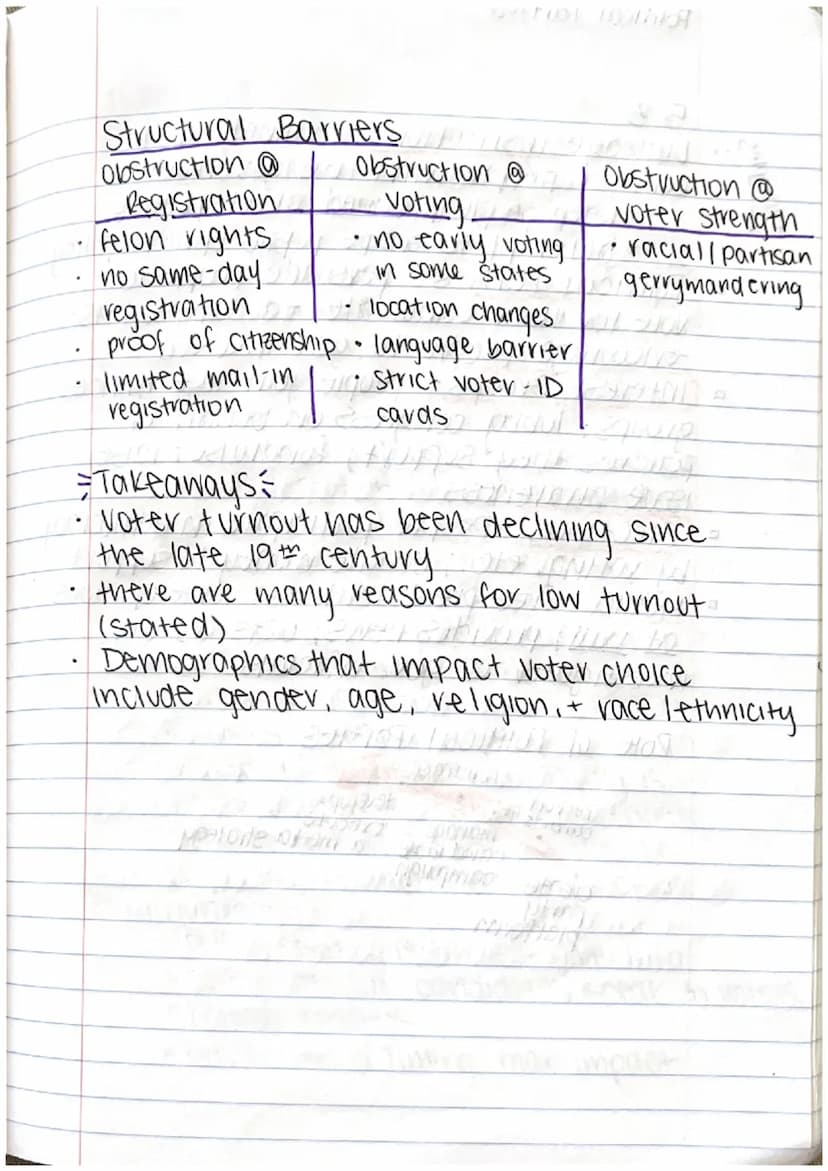 Structural Barriers
Obstruction @
Registration
· felon rights
· no same-day
registration
· proof of citizenship
· limited mail-in
registration
Obstruction @
voting
· no early voting
in some states
· location changes
· language barrier
· strict voter-ID
cards
Obstruction @
voter strength
· racial/partisan
gerrymandering
Takeaways
· Voter turnout has been declining since
the late 19th century
· there are many reasons for low turnout
(stated)
· Demographics that impact voter choice
include gender, age, religion, + race/ethnicity